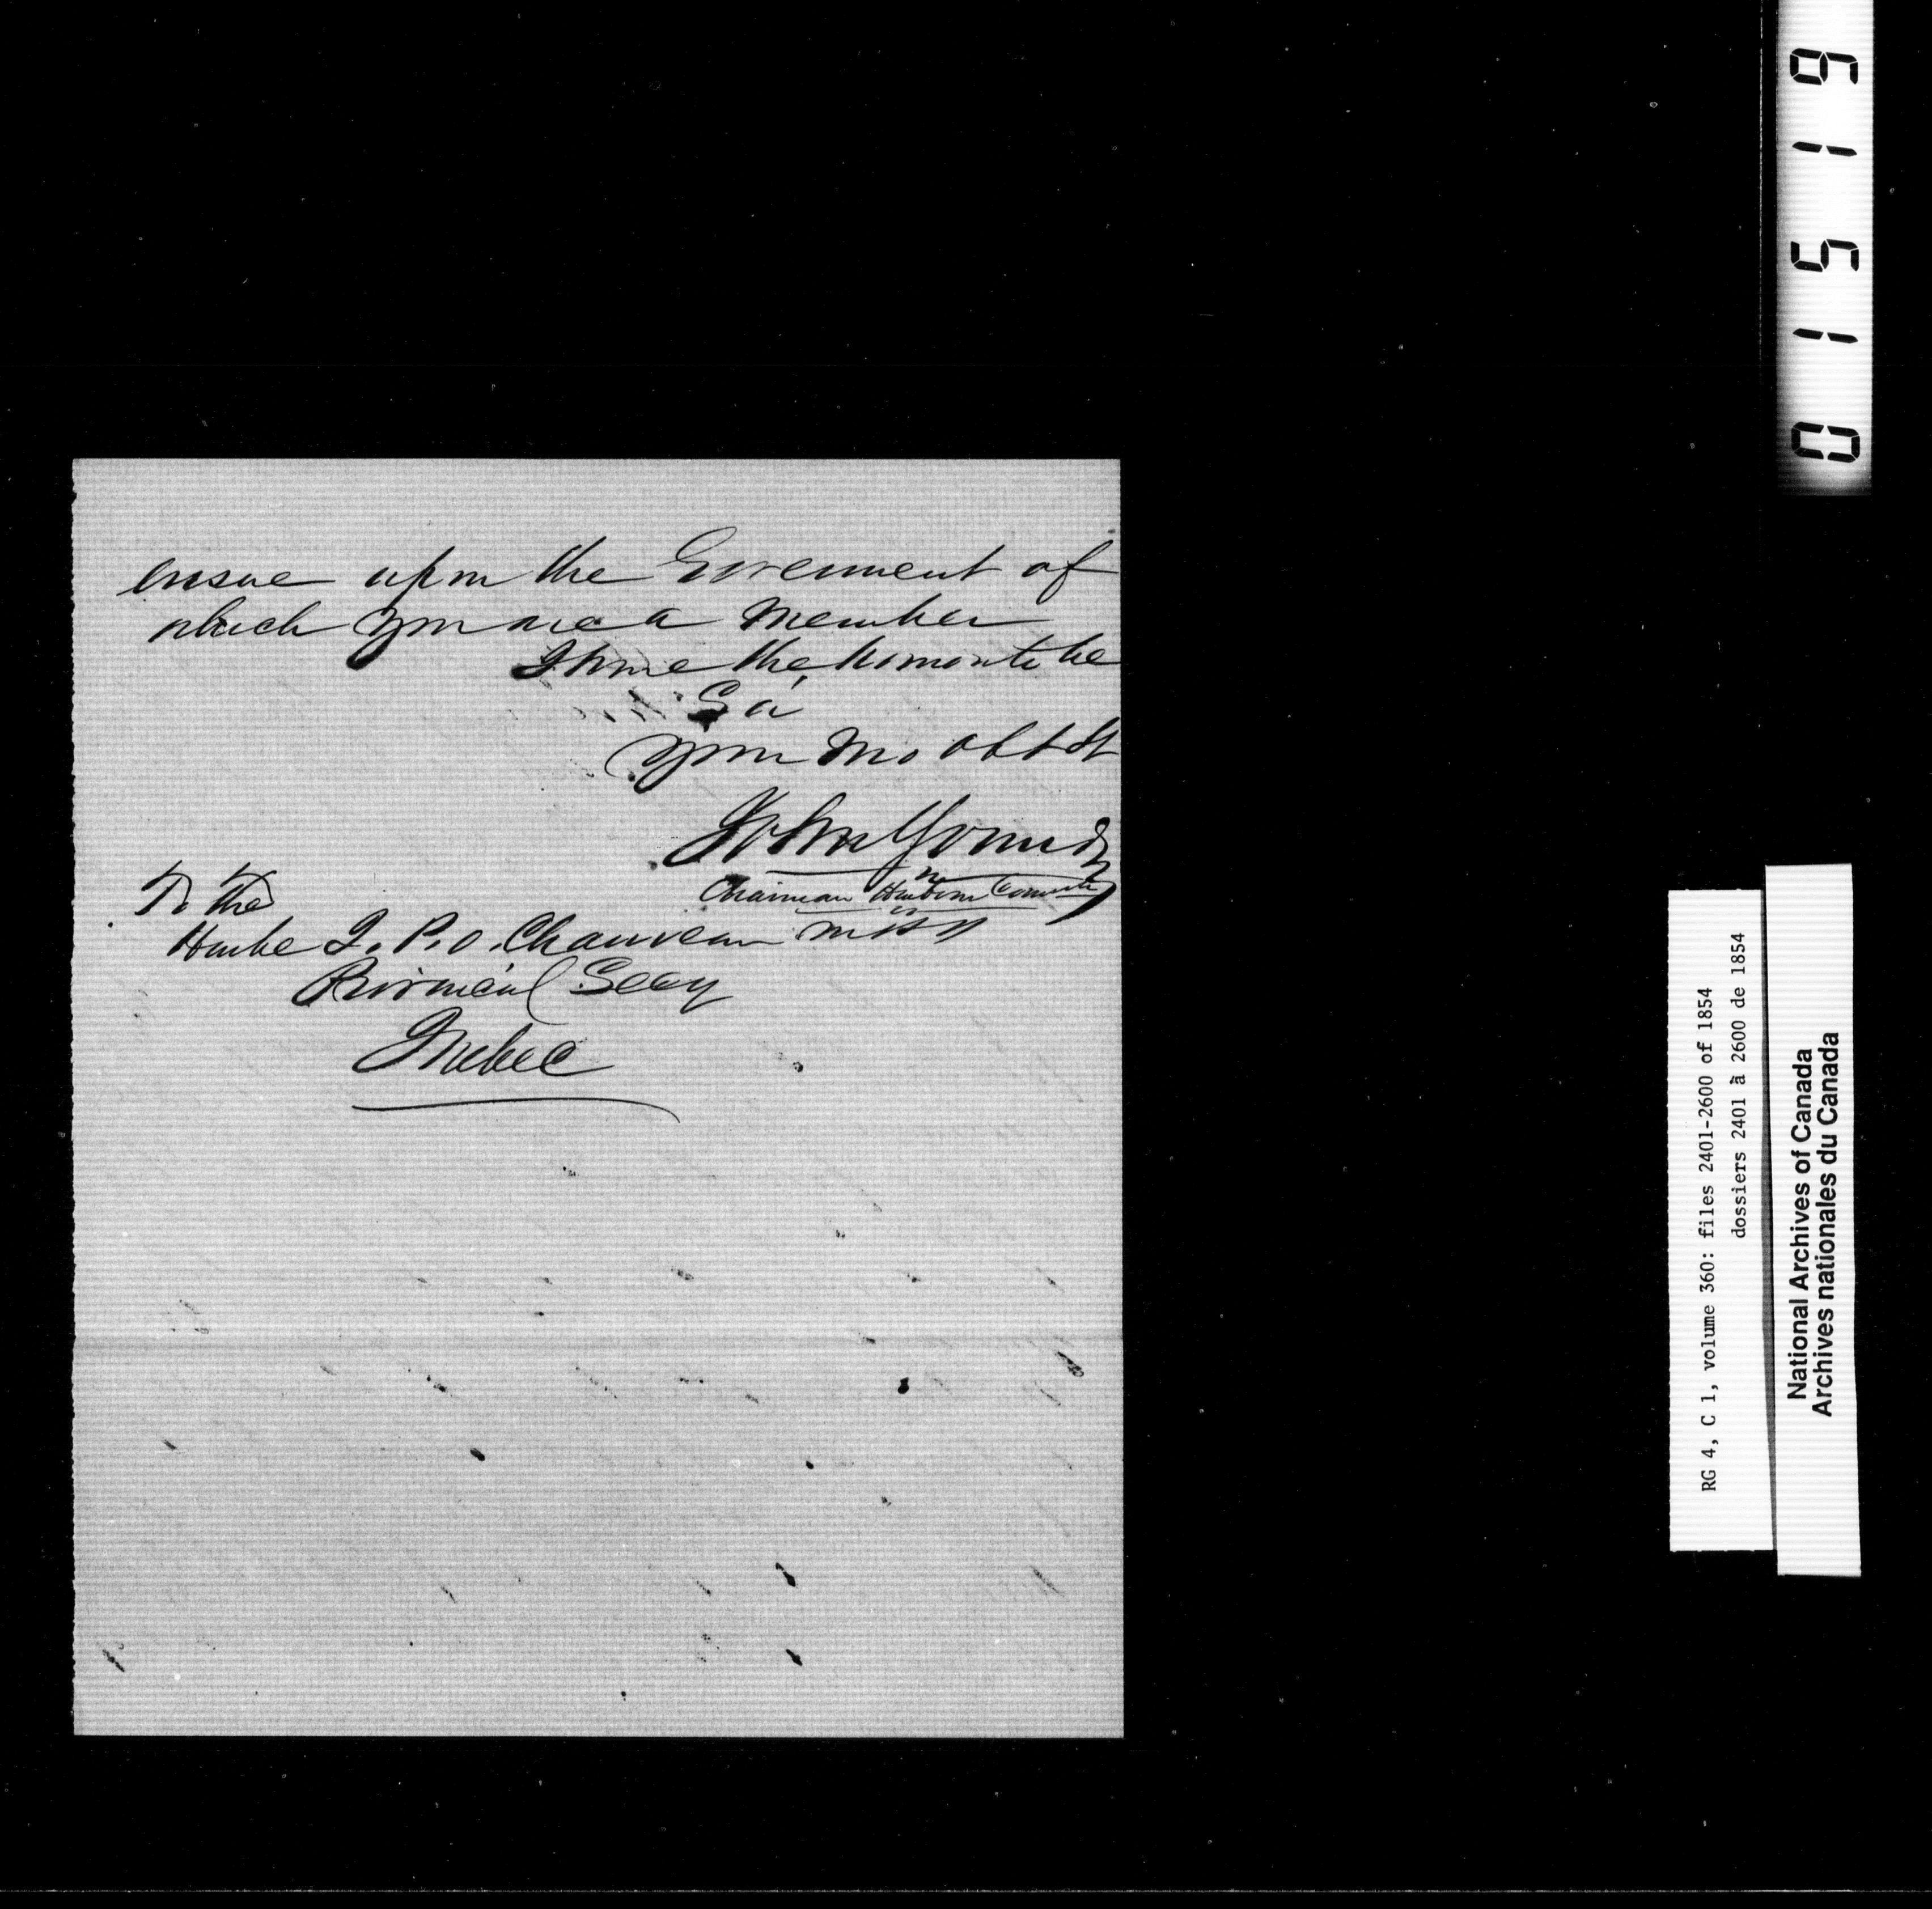 ensue upon the Government of
which you are a Member
I have the honor to be
Sir
Your Mo Obt St
John Young
Chairman Harbour Committee
To the
Honbe P. J. O. Chauveau
Provincial Secy
Quebec
01519
RG 4, C 1, volume 360: files 2401-2600 of 1854
dossiers 2401 à 2600 de 1854
National Archives of Canada
Archives nationales du Canada